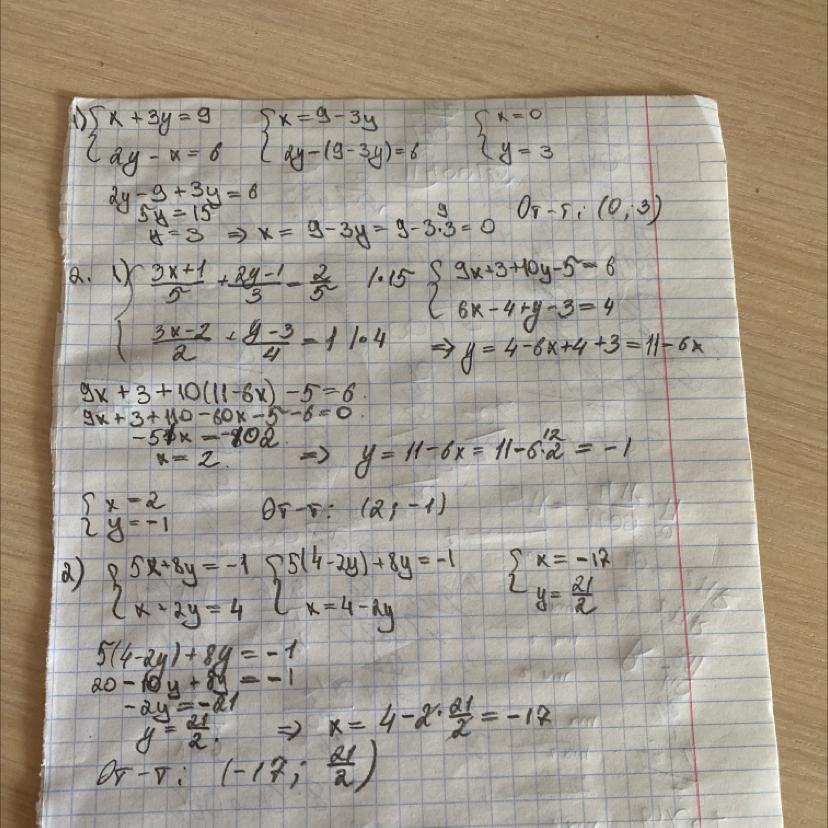 1) { x + 3y = 9 { x = 9 - 3y { x = 0
{ 2y - x = 6 { 2y - (9 - 3y) = 6 { y = 3
2y - 9 + 3y = 6
5y = 15
y = 3 ⇒ x = 9 - 3y = 9 - 3·3 = 0 От-т: (0; 3)
2. 1) { (3x+1)/5 + (2y-1)/3 = 2/5 |·15 { 9x + 3 + 10y - 5 = 6
{ (3x-2)/2 + (y-3)/4 = 1 |·4 { 6x - 4 + y - 3 = 4
⇒ y = 4 - 6x + 4 + 3 = 11 - 6x
9x + 3 + 10(11 - 6x) - 5 = 6.
9x + 3 + 110 - 60x - 5 - 6 = 0.
-51x = -102.
x = 2. ⇒ y = 11 - 6x = 11 - 6·2 = -1
{ x = 2
{ y = -1 От-т: (2; -1)
2) { 5x + 8y = -1 { 5(4 - 2y) + 8y = -1 { x = -17
{ x + 2y = 4 { x = 4 - 2y { y = 21/2
5(4 - 2y) + 8y = -1
20 - 10y + 8y = -1
-2y = -21
y = 21/2. ⇒ x = 4 - 2·21/2 = -17
От-т: (-17; 21/2)